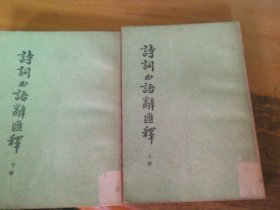 詩詞曲語辭匯釋
上冊
詩詞曲語辭匯釋
下冊